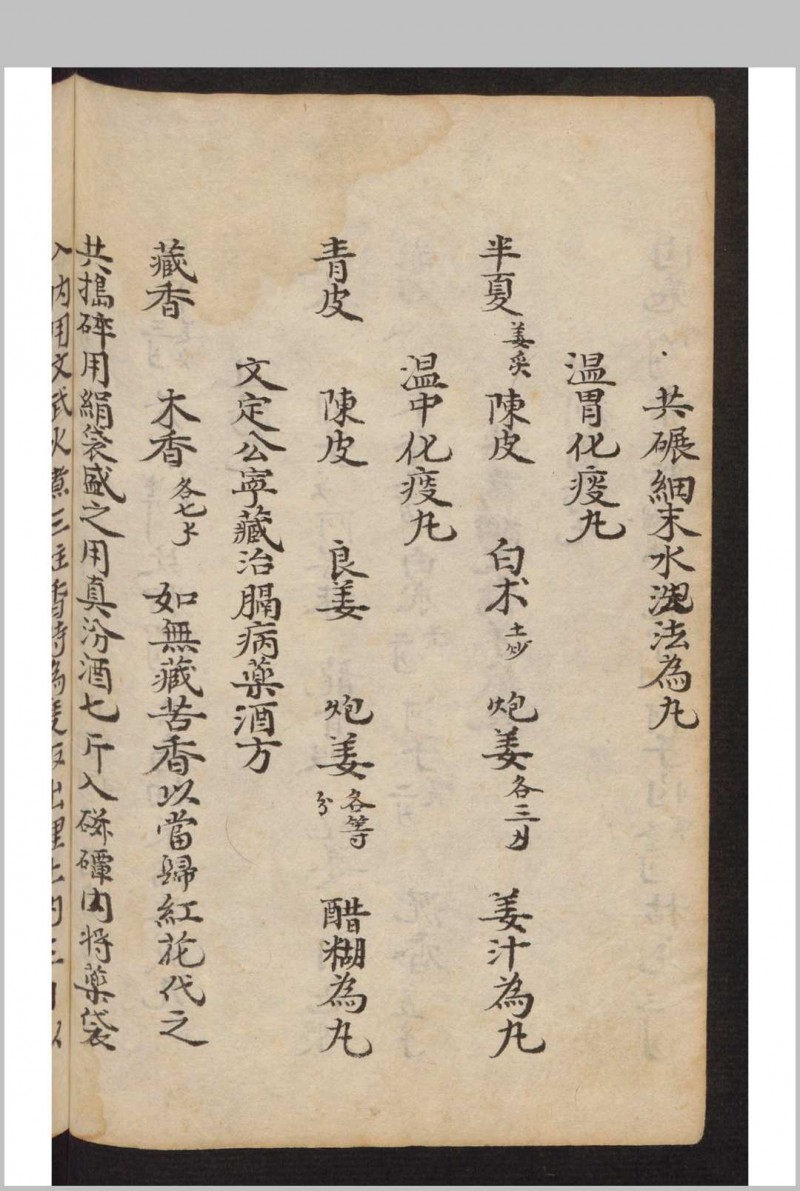 共碾細末水泼法為丸
温胃化痰丸
半夏姜炙陳皮 白术土炒 炮姜各三刄 姜汁為丸
温中化痰丸
青皮 陳皮 良姜 炮姜各等分 醋糊為丸
文定公寧藏治膈病藥酒方
藏香 木香各七 如無藏苦香以當歸紅花代之
共搗碎用絹袋盛之用真汾酒七斤入磁礶内将藥袋
入内用文武火煮三炷香時為度取出埋土内三日以